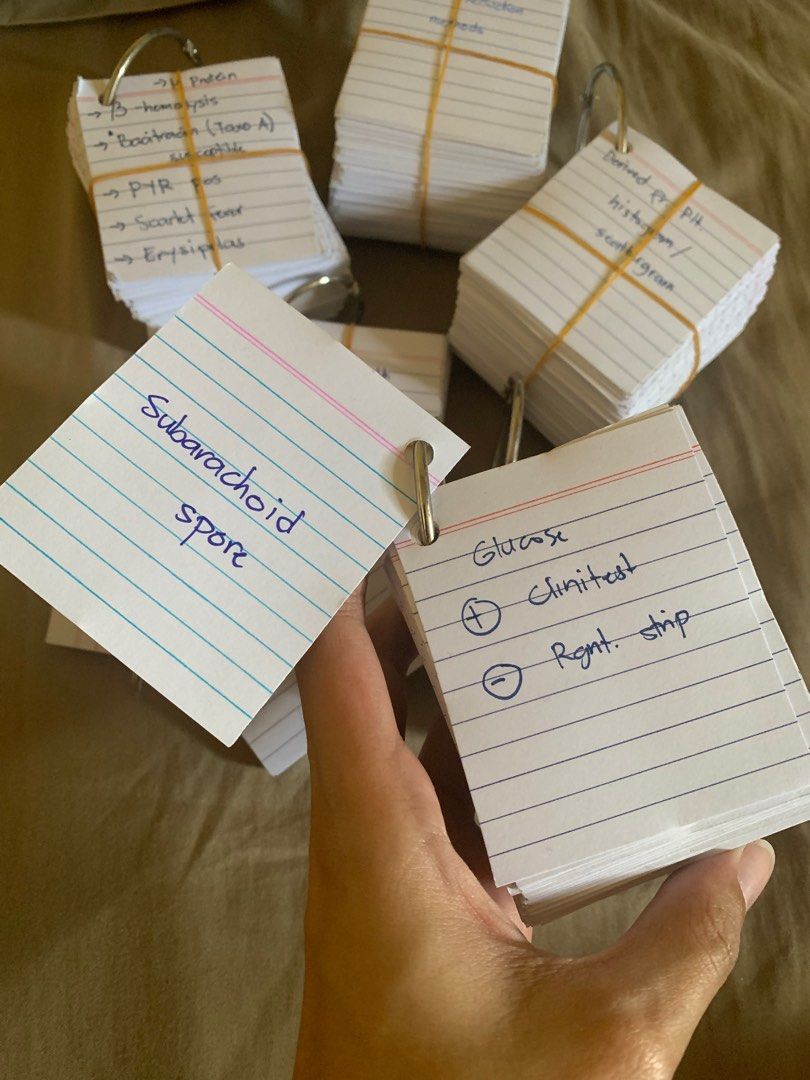 → M Protein
→ β-hemolysis
→ Bacitracin (Taxo A)
susceptible
→ PYR pos
→ Scarlet fever
→ Erysipelas
methods
Derived fr. Plt.
histogram/
scattergram
Subarachoid
spore
Glucose
⊕ Clinitest
⊖ Rgnt. strip